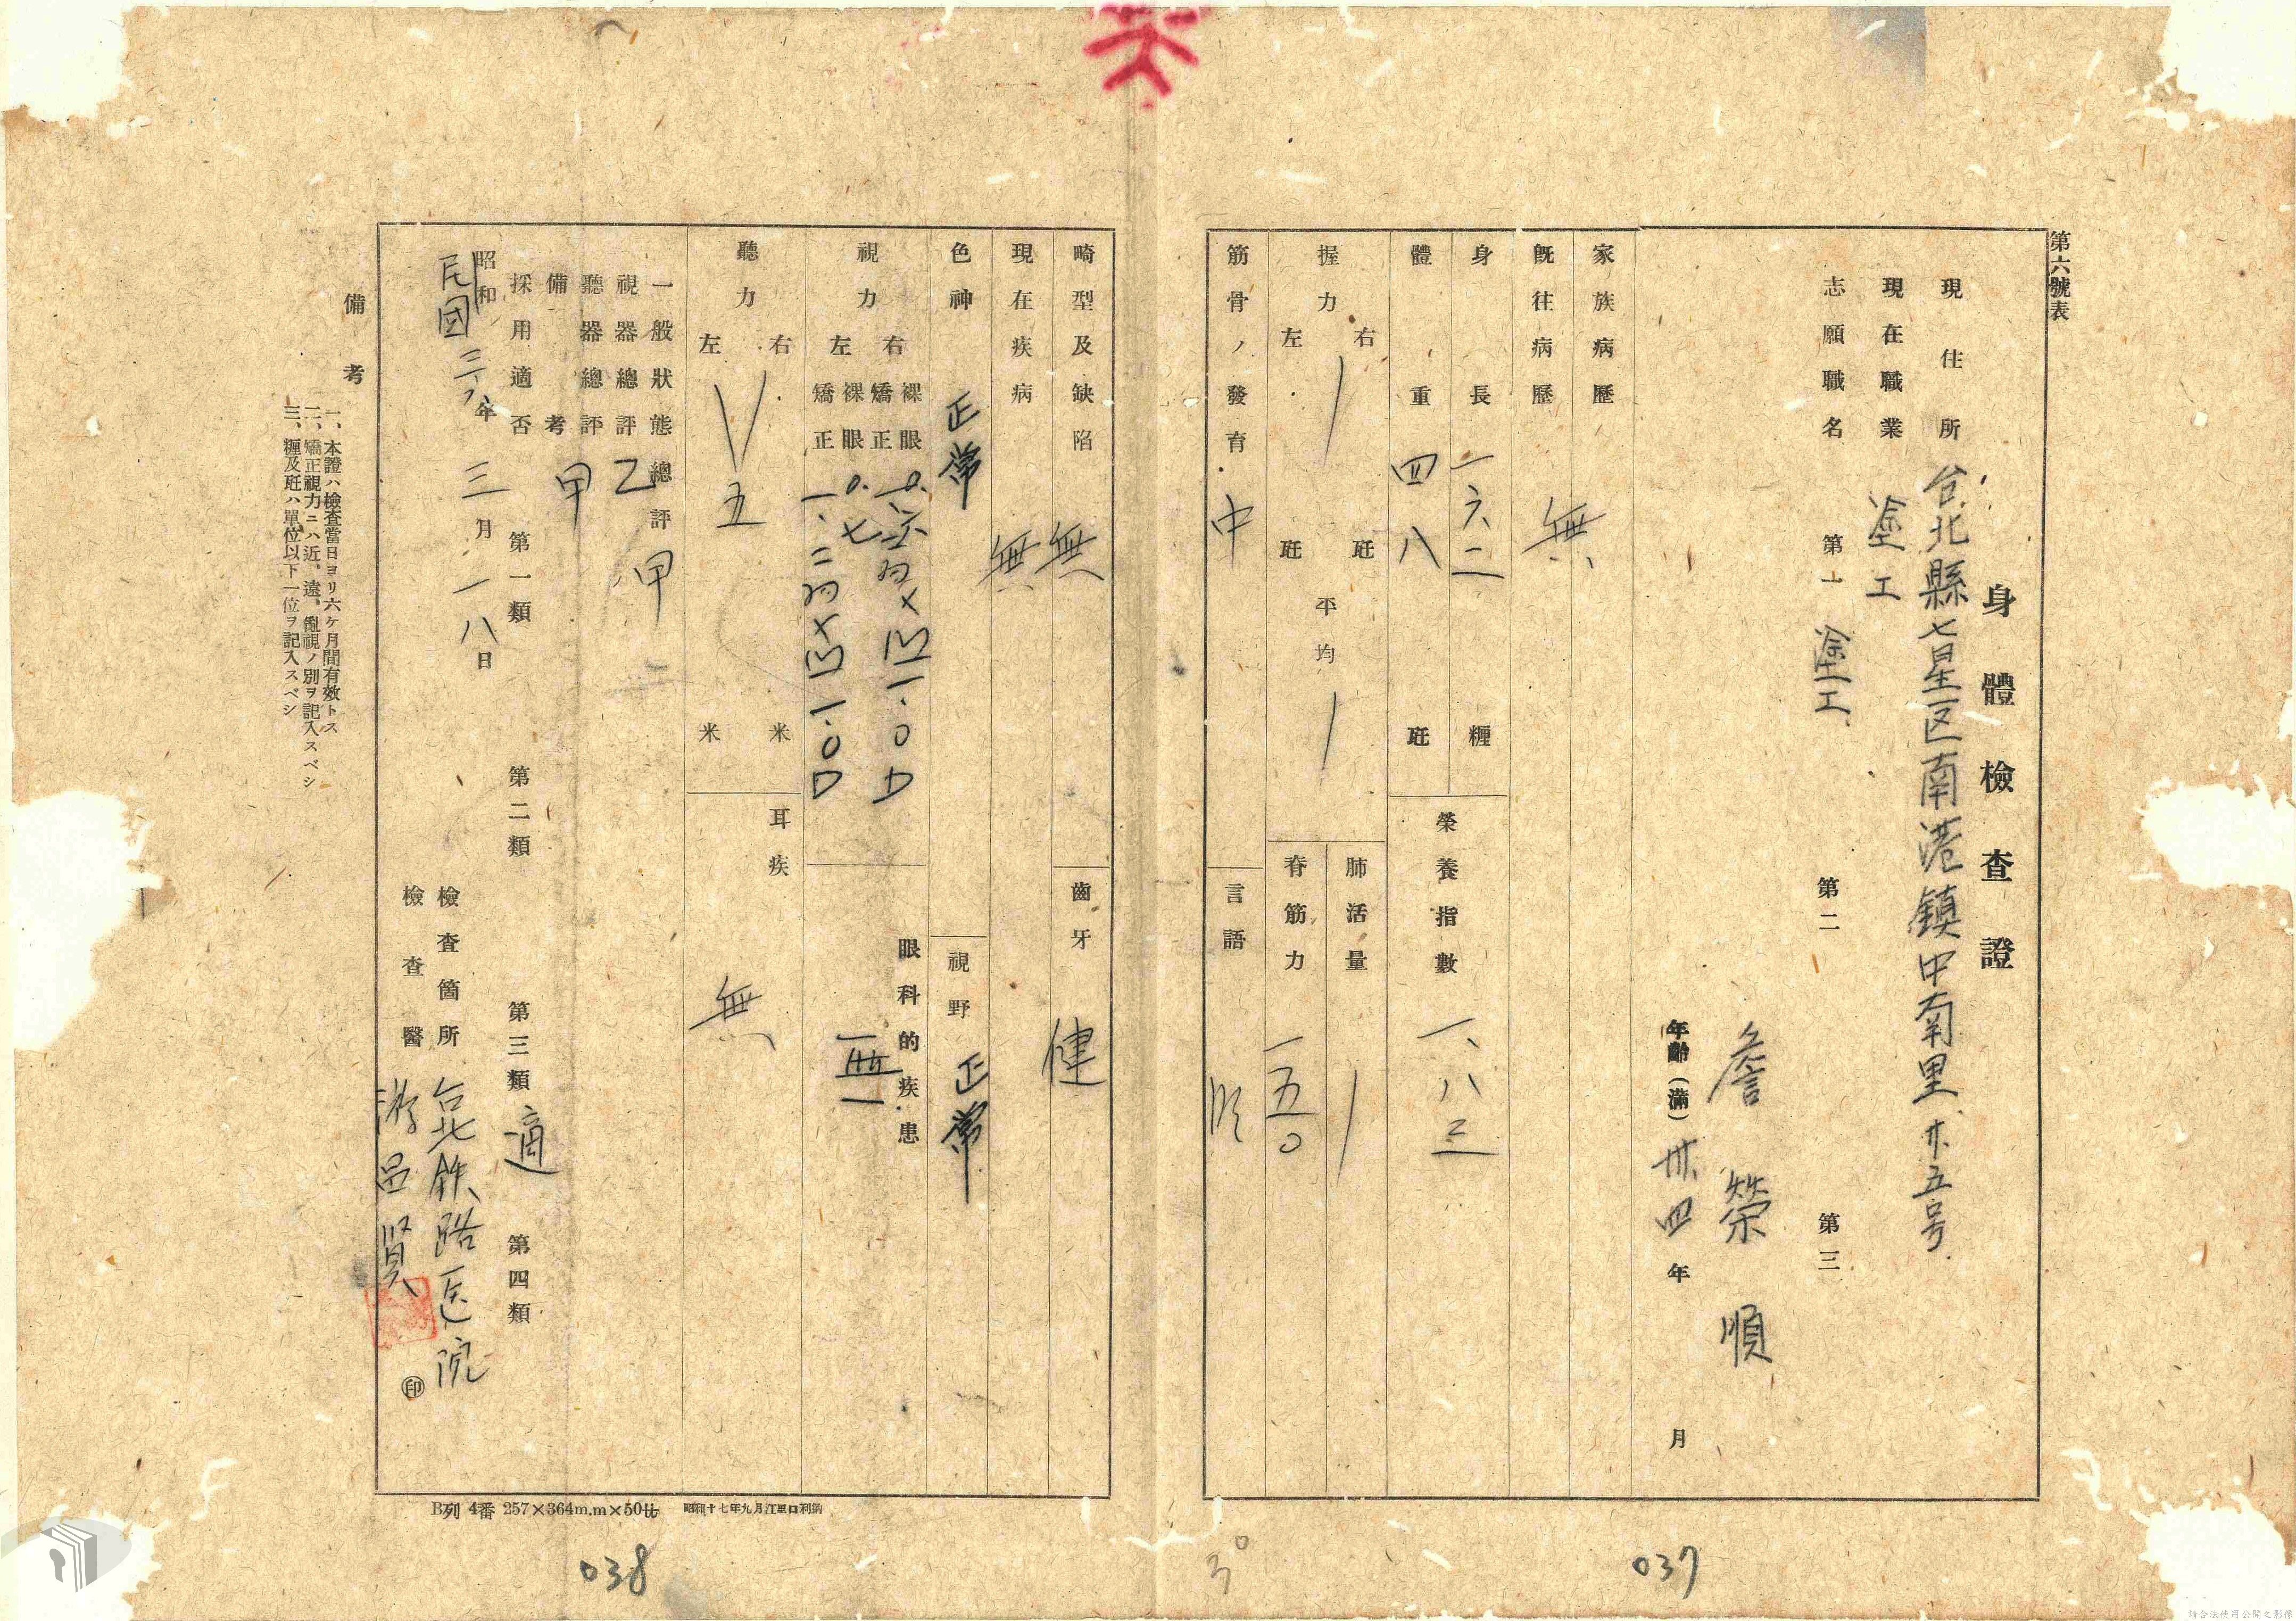 第六號表
身體檢查證
現住所 台北縣七星区南港鎮中南里廿五号
現在職業 塗工
志願職名 第一 塗工 第二 第三
詹榮順
年齡（滿）卅四年 月
家族病歷
既往病歷 無
身長 一六二 糎
體重 四八 瓩
榮養指數 一、八三
握力 右 瓩 左 瓩 平均
肺活量
脊筋力 一五〇
筋骨ノ發育 中
言語
畸型及缺陷 無
齒牙 健
現在疾病 無
色神 正常
視野 正常
視力
右 裸眼 0.六
矯正
左 裸眼 0.七
矯正
眼科的疾患 無
聽力 右 米 左 五 米
耳疾 無
一般狀態總評 甲
視器總評 乙
聽器總評 甲
備考
採用適否 第一類 第二類 第三類 適 第四類
昭和 民國 年 三月一八日
檢查箇所 台北鉄路医院
檢查醫 賢 ㊞
備考
一、本證ハ檢査當日ヨリ六ケ月間有效トス
二、矯正視力ニハ近、遠、亂視ノ別ヲ記入スベシ
三、糎及瓩ハ單位以下一位ヲ記入スベシ
B列 4番 257×364m.m×50
037
038